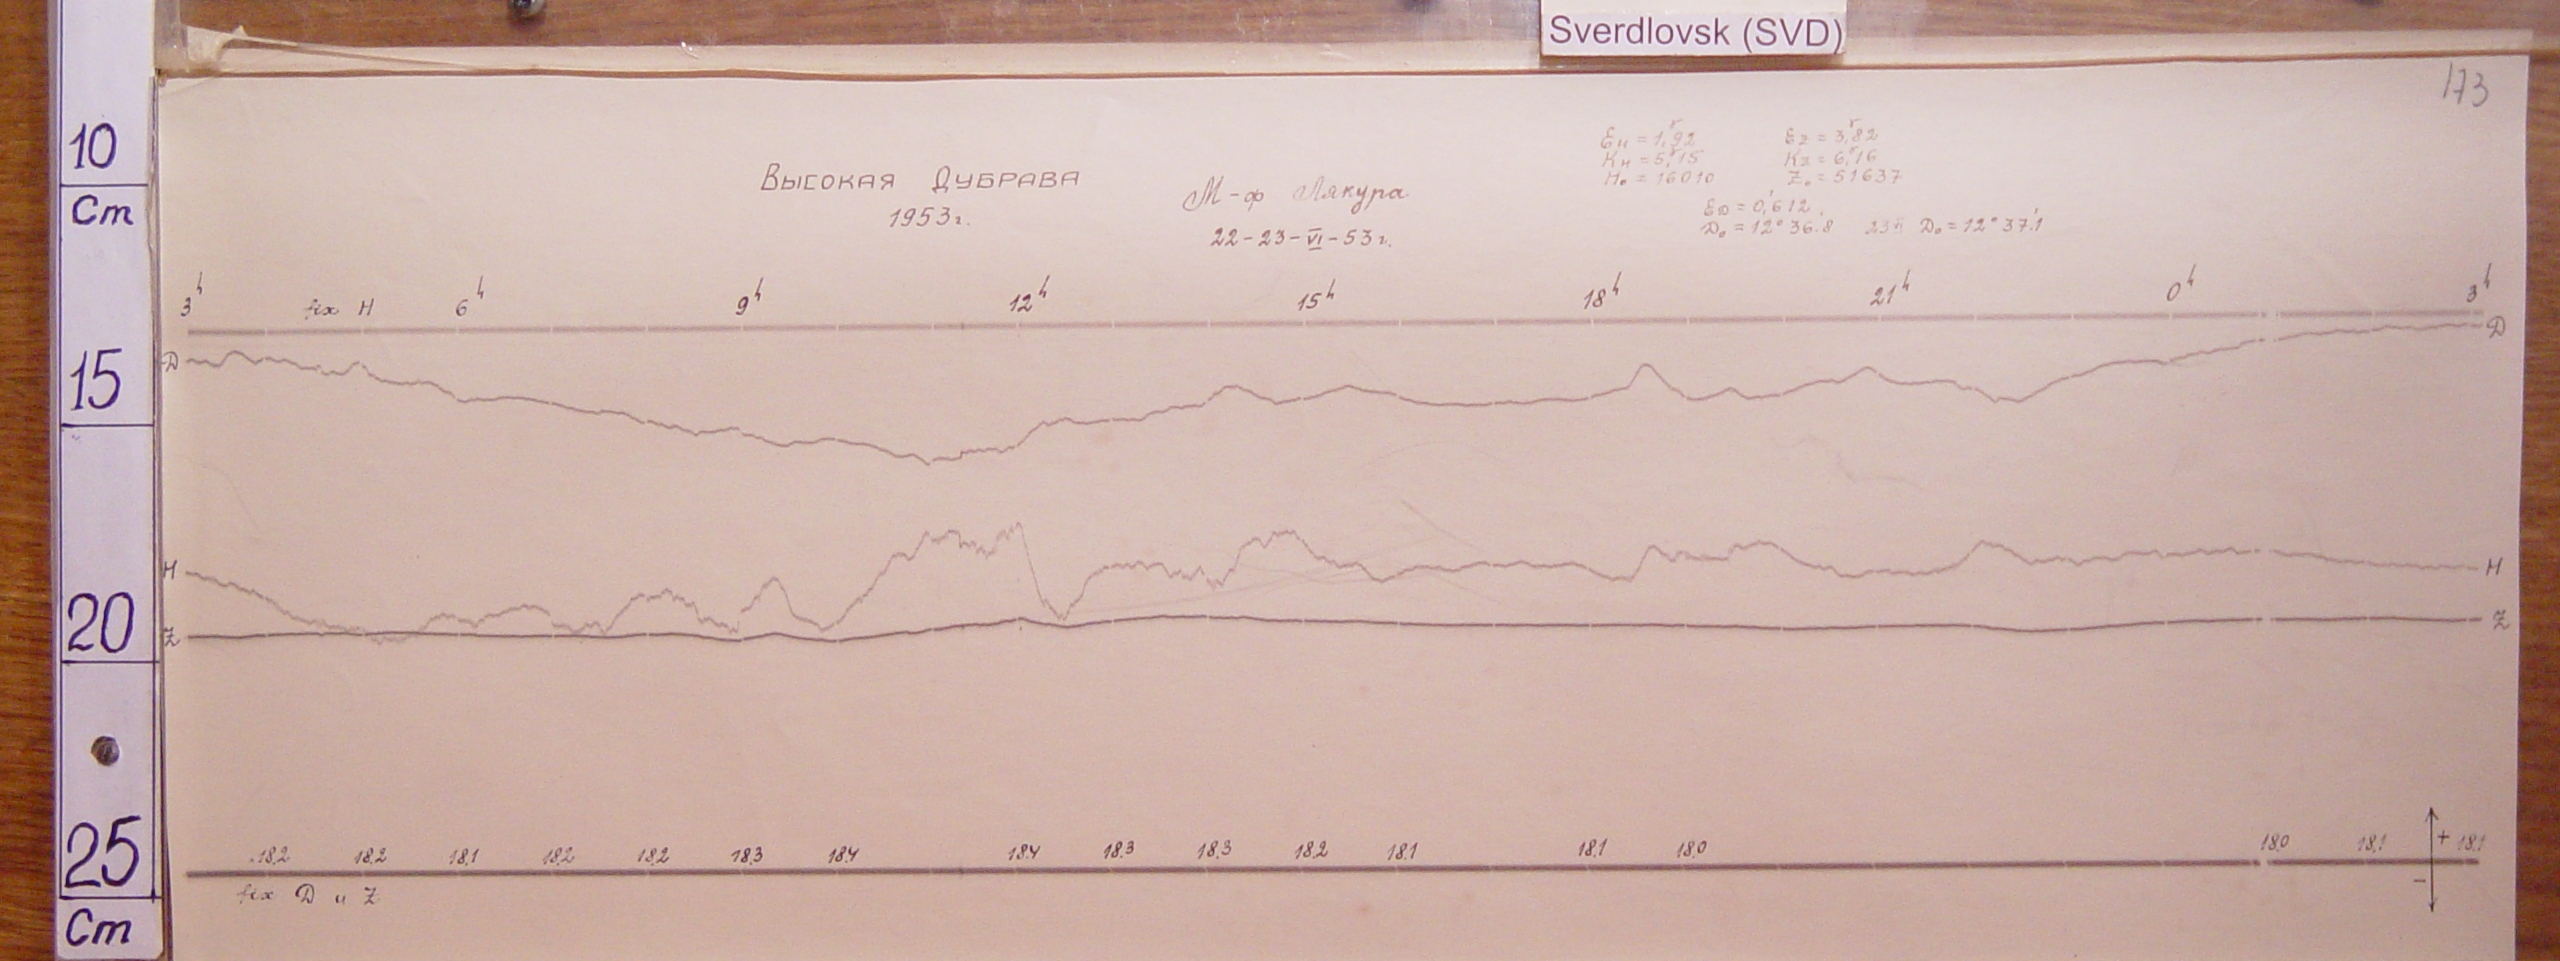 Sverdlovsk (SVD)
173
10
Cm
15
20
25
Cm
Высокая Дубрава
1953г.
М-ф Лякура
22-23-VI-53г.
Eн = 1,92
Kн = 5,15
H₀ = 16010
Ez = 3,82
Kz = 6,16
Z₀ = 51637
ED = 0,612
D₀ = 12° 36.8 23 D₀ = 12° 37.1
3h fix H 6h 9h 12h 15h 18h 21h 0h 3h
D D
H H
Z Z
18.2 18.2 18.1 18.2 18.2 18.3 18.4 18.4 18.3 18.3 18.2 18.1 18.1 18.0 18.0 18.1 + 18.1
-
fix D и Z